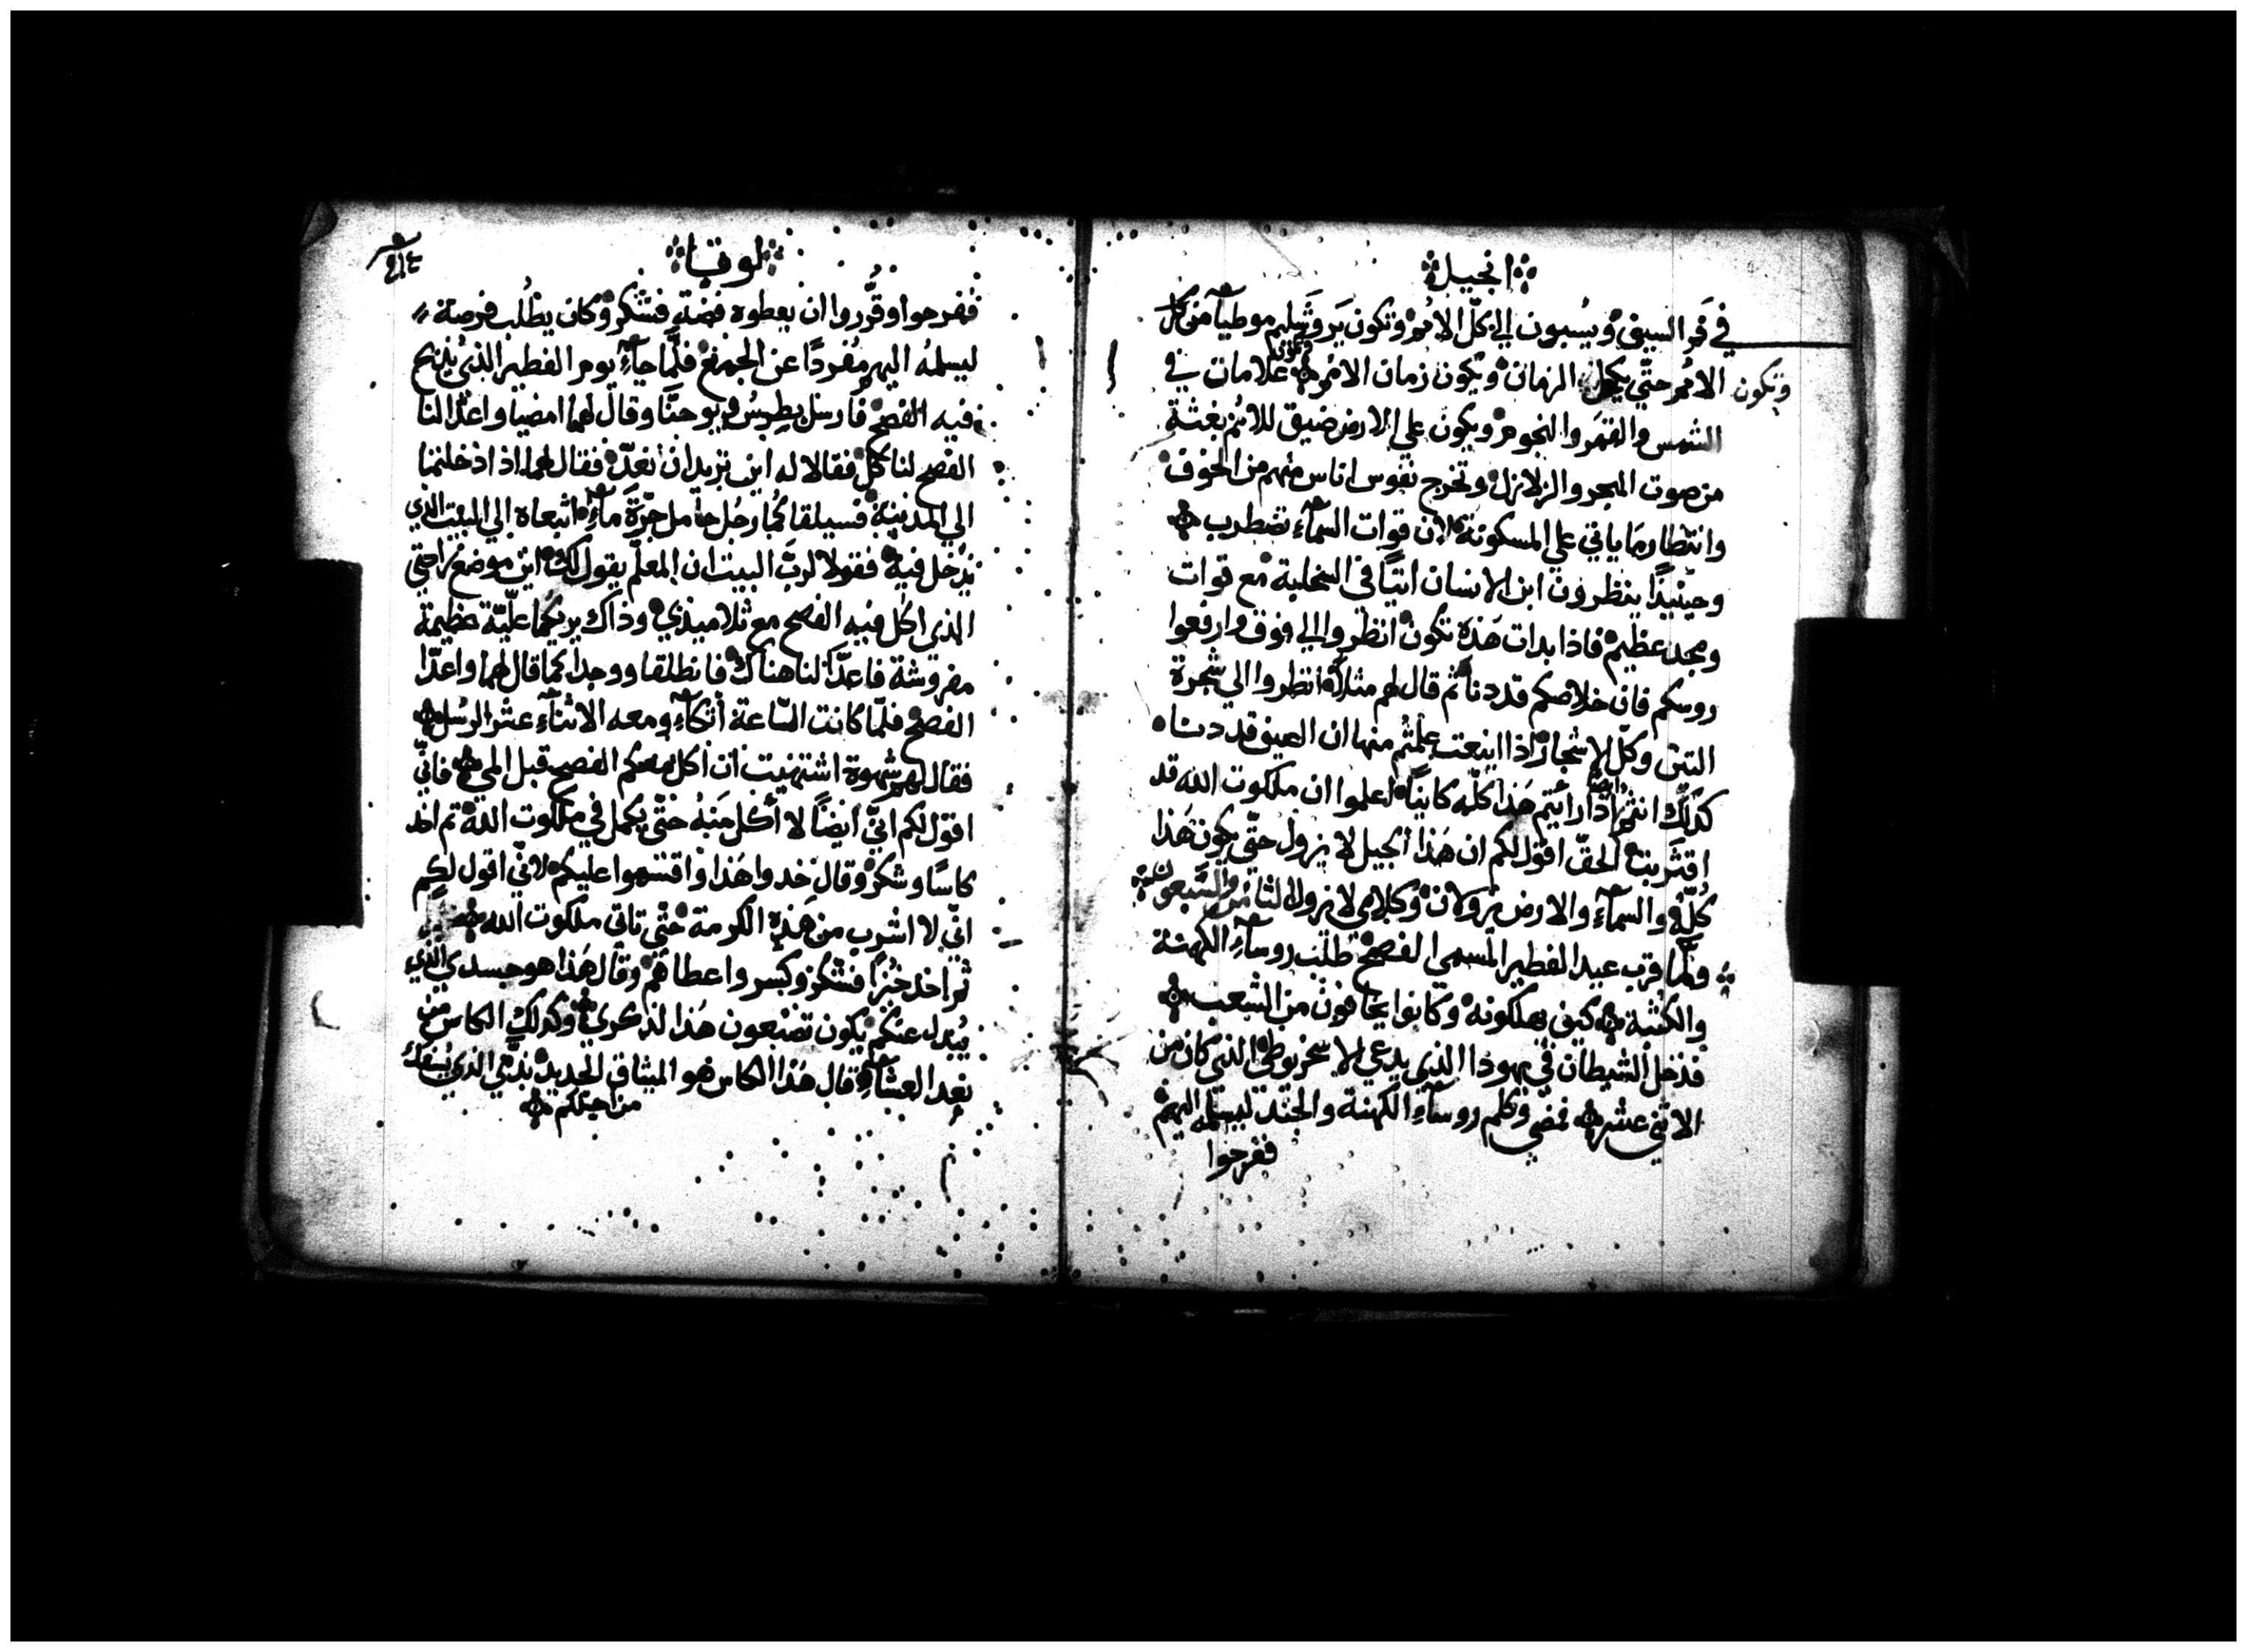 انجيل
في فم السيف ويسبون الي كلّ الامم وتكون يروشليم موطيآ من كل
الامم حتّي يكمل الزمان ويكون زمان الامم وتكون علامات في
وتكون
الشمس والقمر والنجوم ويكون علي الارض ضيق للامم بغتة
من صوت البحر والزلازل وتخرج نفوس اناس منهم من الخوف
وانتظار ما ياتي علي المسكونة لان قوات السمآء تضطرب
وحينيذٍ ينظرون ابن الانسان اتيًا في السحابة مع قوات
ومجد عظيم فاذا بدات هذه تكون انظروا الي فوق وارفعوا
روسكم فان خلاصكم قد دنا ثم قال لهم مثلاً انظروا الي شجرة
التين وكلّ الاشجار اذا اينعت علمتم منها ان الصيف قد دنا
كذلك انتم ايضًا اذا رايتم هذا كلّه كاينًا اعلموا ان ملكوت الله قد
اقتربت الحقّ اقول لكم ان هذا الجيل لا يزول حتّي يكون هذا
كلّه والسمآء والارض يزولان وكلامي لا يزول الثامن والسبعون
ولمّا قرب عيد الفطير المسمي الفصح طلب روسآء الكهنة
والكتبة كيف يهلكونه وكانوا يخافون من الشعب
فدخل الشيطان في يهوذا الذي يدعي الاسخريوطي الذي كان من
الاثني عشر فمضي وكلم روسآء الكهنة والجند ليسلمه اليهم
ففرحوا
لوقا
ففرحوا وقرّروا ان يعطوه فضة فشكر وكان يطلب فرصة
ليسلمه اليهم مفردًا عن الجمع فلمّا جآء يوم الفطير الذي يذبح
فيه الفصح فارسل بطرس ويوحنّا وقال لهما امضيا واعدّا لنا
الفصح لناكل فقالا له اين تريد ان نعدّ فقال لهما اذا دخلتما
الي المدينة فسيلقاكما رجل حامل جرّة مآء اتبعاه الي البيت الذي
يدخل فيه فقولا لربّ البيت ان المعلّم يقول لك اين موضع راحتي
الذي اكل فيه الفصح مع تلاميذي وذاك يريكما علّيّة عظيمة
مفروشة فاعدّا لنا هناك فانطلقا ووجدا كما قال لهما واعدّا
الفصح فلمّا كانت السّاعة اتّكآء ومعه الاثنآء عشر الرسل
فقال لهم شهوة اشتهيت ان اكل معكم الفصح قبل المي فانّي
اقول لكم انّي ايضًا لا أكل منه حتّي يكمل في ملكوت الله ثم اخذ
كاسًا وشكر وقال خدوا هذا واقتسموا عليكم لانّي اقول لكم
انّي لا اشرب من هذه الكرمة حتّي تاتي ملكوت الله
ثم اخذ خبزًا فشكر وكسر واعطاهم وقال هذا هو جسدي الذي
يبدل عنكم يكون تصنعون هذا لذكري وكذلك الكاس من
بعد العشآء قال هذا الكاس هو الميثاق الجديد بدمي الذي يسفك
من اجلكم